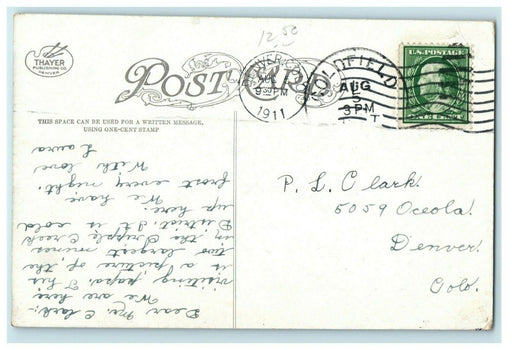 12.50
THAYER
PUBLISHING CO.
DENVER
POST CARD
DENVER, COLO.
AUG
9 30 PM
1911
GOLDFIELD
AUG
5
3 PM
U.S. POSTAGE
ONE CENT
THIS SPACE CAN BE USED FOR A WRITTEN MESSAGE,
USING ONE-CENT STAMP
P. L. Clark.
5059 Oceola.
Denver.
Colo.
Dear Mr. Clark:-
We are here
visiting papa. This
is a picture of the
two largest mines
in the Cripple Creek
District. It is cold
up here.
We have
frost every night.
With love
Laura